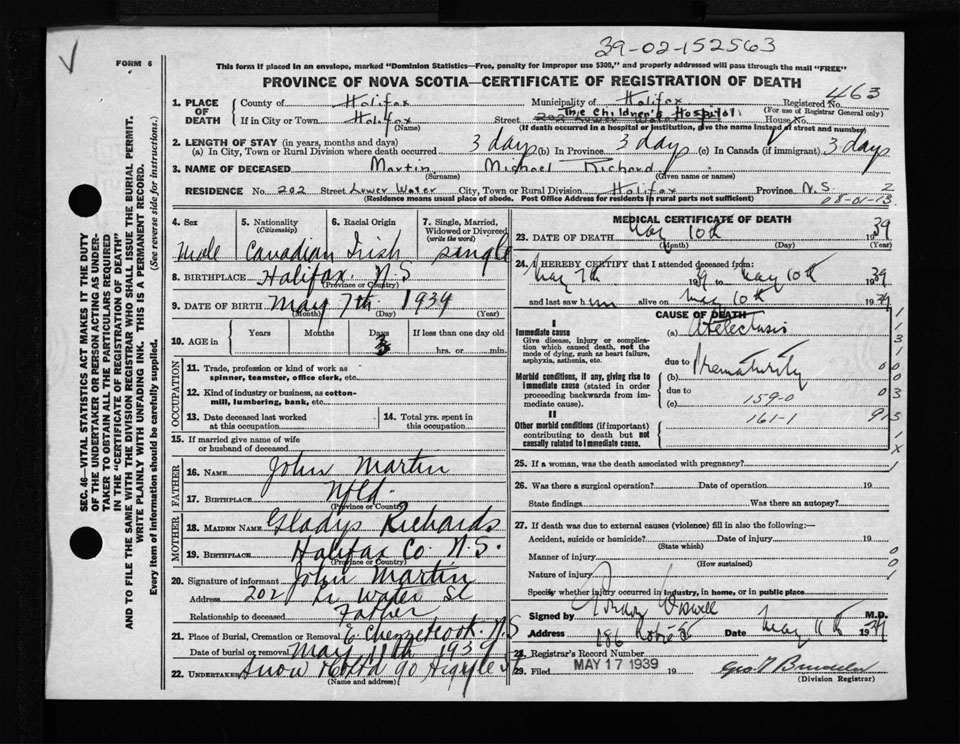 39-02-152563
FORM 6
This form if placed in an envelope, marked "Dominion Statistics—Free, penalty for improper use $300," and properly addressed will pass through the mail "FREE"
PROVINCE OF NOVA SCOTIA—CERTIFICATE OF REGISTRATION OF DEATH
463
1. PLACE OF DEATH
County of Halifax Municipality of Halifax Registered No.
(For use of Registrar General only)
If in City or Town Halifax Street The Children's Hospital House No.
(Name) (If death occurred in a hospital or institution, give the name instead of street and number)
2. LENGTH OF STAY (in years, months and days)
(a) In City, Town or Rural Division where death occurred 3 days (b) In Province 3 days (c) In Canada (if immigrant) 3 days
3. NAME OF DECEASED Martin Michael Richard
(Surname) (Given name or names)
RESIDENCE No. 202 Street Lower Water City, Town or Rural Division Halifax Province N.S. 2
(Residence means usual place of abode. Post Office Address for residents in rural parts not sufficient) 08-01-13
4. Sex 5. Nationality (Citizenship) 6. Racial Origin 7. Single, Married, Widowed or Divorced (write the word)
Male Canadian Irish single
8. BIRTHPLACE Halifax N.S
(Province or Country)
9. DATE OF BIRTH May 7th 1939
(Month) (Day) (Year)
10. AGE in Years Months Days If less than one day old
3 hrs. or min.
OCCUPATION
11. Trade, profession or kind of work as spinner, teamster, office clerk, etc.
12. Kind of industry or business, as cotton-mill, lumbering, bank, etc.
13. Date deceased last worked at this occupation
14. Total yrs. spent in this occupation
15. If married give name of wife or husband of deceased
FATHER
16. NAME John Martin
17. BIRTHPLACE Nfld.
(Province or Country)
MOTHER
18. MAIDEN NAME Gladys Richards
19. BIRTHPLACE Halifax Co. N.S.
(Province or Country)
20. Signature of informant John Martin
Address 202 Lr Water St
Relationship to deceased Father
21. Place of Burial, Cremation or Removal E. Chezzetcook N.S
Date of burial or removal May 11th 1939
22. UNDERTAKER Snow & Co Ltd 90 Argyle St
(Name and address)
MEDICAL CERTIFICATE OF DEATH
23. DATE OF DEATH May 10th 1939
(Month) (Day) (Year)
24. I HEREBY CERTIFY that I attended deceased from:
May 7th 1939 to May 10th 1939
and last saw him alive on May 10th 1939
CAUSE OF DEATH
I
Immediate cause (a) Atelectasis
Give disease, injury or complication which caused death, not the mode of dying, such as heart failure, asphyxia, asthenia, etc.
due to
Morbid conditions, if any, giving rise to immediate cause (stated in order proceeding backwards from immediate cause). (b) Prematurity
due to
(c) 159-0
II
161-1
Other morbid conditions (if important) contributing to death but not causally related to immediate cause.
25. If a woman, was the death associated with pregnancy?
26. Was there a surgical operation? Date of operation 19
State findings Was there an autopsy?
27. If death was due to external causes (violence) fill in also the following:—
Accident, suicide or homicide? Date of injury 19
(State which)
Manner of injury
(How sustained)
Nature of injury
Specify whether injury occurred in industry, in home, or in public place
Signed by M.D.
Address 186 Date May 11th 1939
28. Registrar's Record Number
29. Filed MAY 17 1939 19 Geo
(Division Registrar)
SEC. 46—VITAL STATISTICS ACT MAKES IT THE DUTY
OF THE UNDERTAKER OR PERSON ACTING AS UNDER-
TAKER TO OBTAIN ALL THE PARTICULARS REQUIRED
IN THE "CERTIFICATE OF REGISTRATION OF DEATH"
AND TO FILE THE SAME WITH THE DIVISION REGISTRAR WHO SHALL ISSUE THE BURIAL PERMIT.
WRITE PLAINLY WITH UNFADING INK. THIS IS A PERMANENT RECORD.
Every item of information should be carefully supplied. (See reverse side for instructions.)